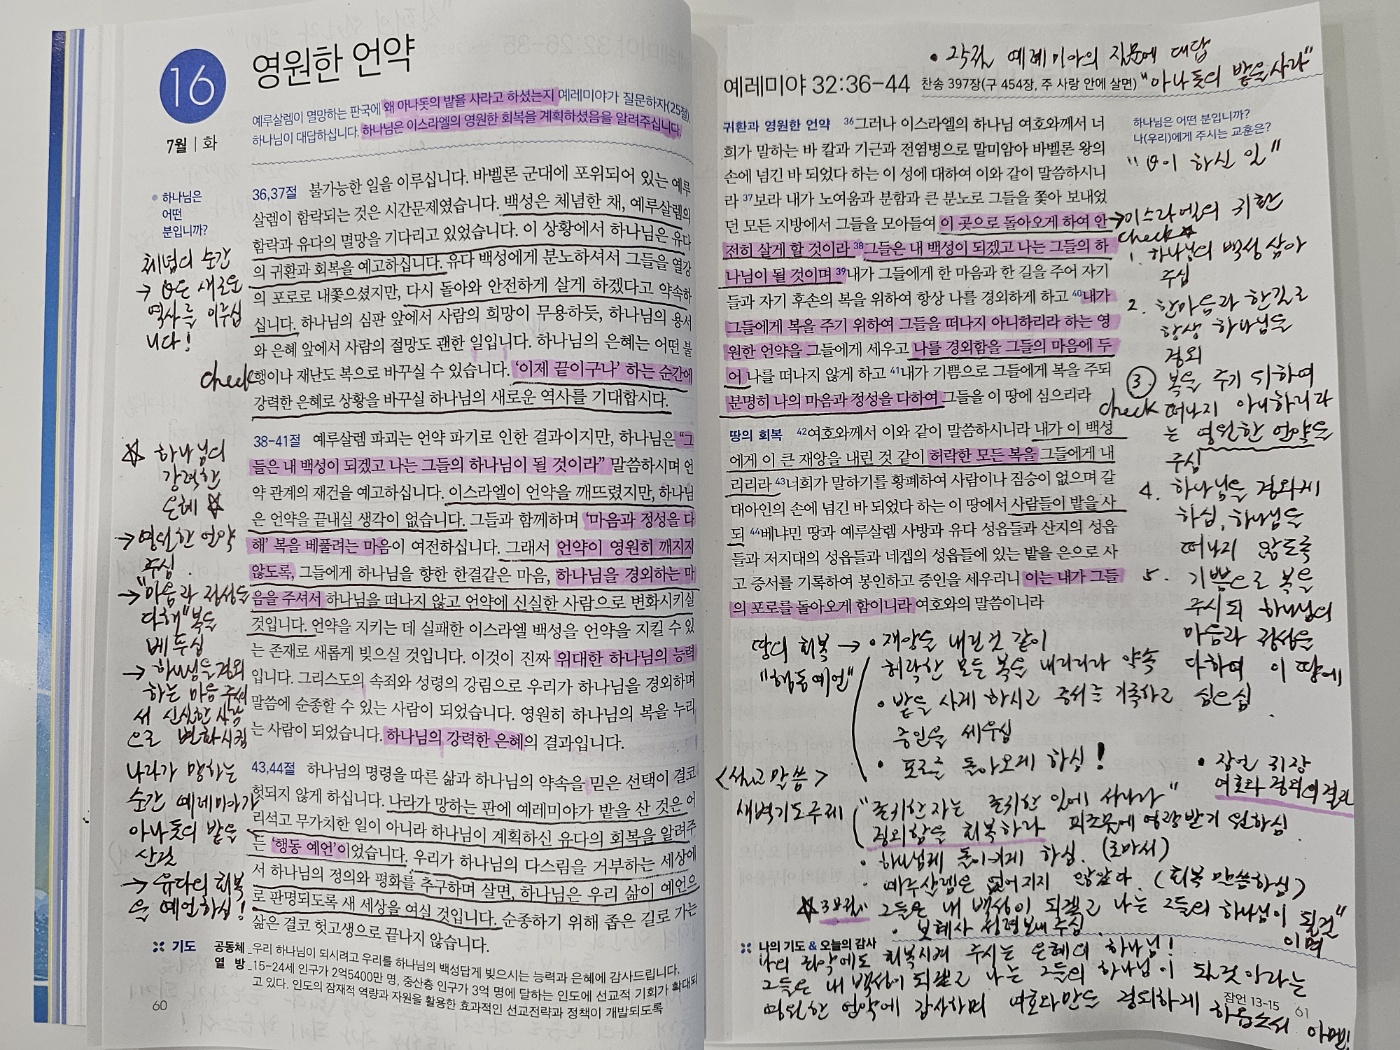 16
7월 | 화
영원한 언약
예루살렘이 멸망하는 판국에 왜 아나돗의 밭을 사라고 하셨는지 예레미야가 질문하자(25절)
하나님이 대답하십니다. 하나님은 이스라엘의 영원한 회복을 계획하셨음을 알려주십니다.
하나님은
어떤
분입니까?
36,37절 불가능한 일을 이루십니다. 바벨론 군대에 포위되어 있는 예루
살렘이 함락되는 것은 시간문제였습니다. 백성은 체념한 채, 예루살렘의
함락과 유다의 멸망을 기다리고 있었습니다. 이 상황에서 하나님은 유다
의 귀환과 회복을 예고하십니다. 유다 백성에게 분노하셔서 그들을 열강
의 포로로 내쫓으셨지만, 다시 돌아와 안전하게 살게 하겠다고 약속하
십니다. 하나님의 심판 앞에서 사람의 희망이 무용하듯, 하나님의 용서
와 은혜 앞에서 사람의 절망도 괜한 일입니다. 하나님의 은혜는 어떤 불
행이나 재난도 복으로 바꾸실 수 있습니다. ‘이제 끝이구나’ 하는 순간에
강력한 은혜로 상황을 바꾸실 하나님의 새로운 역사를 기대합시다.
체념의 순간
→ 하나님은 새로운
역사를 이루십
니다!
check
38-41절 예루살렘 파괴는 언약 파기로 인한 결과이지만, 하나님은 “그
들은 내 백성이 되겠고 나는 그들의 하나님이 될 것이라” 말씀하시며 언
약 관계의 재건을 예고하십니다. 이스라엘이 언약을 깨뜨렸지만, 하나님
은 언약을 끝내실 생각이 없습니다. 그들과 함께하며 ‘마음과 정성을 다
해’ 복을 베풀려는 마음이 여전하십니다. 그래서 언약이 영원히 깨지지
않도록, 그들에게 하나님을 향한 한결같은 마음, 하나님을 경외하는 마
음을 주셔서 하나님을 떠나지 않고 언약에 신실한 사람으로 변화시키실
것입니다. 언약을 지키는 데 실패한 이스라엘 백성을 언약을 지킬 수 있
는 존재로 새롭게 빚으실 것입니다. 이것이 진짜 위대한 하나님의 능력
입니다. 그리스도의 속죄와 성령의 강림으로 우리가 하나님을 경외하며
말씀에 순종할 수 있는 사람이 되었습니다. 영원히 하나님의 복을 누리
는 사람이 되었습니다. 하나님의 강력한 은혜의 결과입니다.
☆ 하나님의
강력한
은혜 ☆
→ 영원한 언약
주심.
→ "마음과 정성을
다해" 복을
베푸심
→ 하나님을 경외
하는 마음 주셔
서 신실한 사람
으로 변화시킴
43,44절 하나님의 명령을 따른 삶과 하나님의 약속을 믿은 선택이 결코
헛되지 않게 하십니다. 나라가 망하는 판에 예레미야가 밭을 산 것은 어
리석고 무가치한 일이 아니라 하나님이 계획하신 유다의 회복을 알려주
는 ‘행동 예언’이었습니다. 우리가 하나님의 다스림을 거부하는 세상에
서 하나님의 정의와 평화를 추구하며 살면, 하나님은 우리 삶이 예언으
로 판명되도록 새 세상을 여실 것입니다. 순종하기 위해 좁은 길로 가는
삶은 결코 헛고생으로 끝나지 않습니다.
나라가 망하는
순간 예레미야가
아나돗의 밭을
산일
→ 유다의 회복
을 예언하심!
기도 공동체 우리 하나님이 되시려고 우리를 하나님의 백성답게 빚으시는 능력과 은혜에 감사드립니다.
열 방 15-24세 인구가 2억5400만 명, 중산층 인구가 3억 명에 달하는 인도에 선교적 기회가 확대되
고 있다. 인도의 잠재적 역량과 자원을 활용한 효과적인 선교전략과 정책이 개발되도록
60
• 예레미야의 질문에 대답
"아나돗의 밭을 사라"
예레미야 32:36-44 찬송 397장(구 454장, 주 사랑 안에 살면)
귀환과 영원한 언약 36그러나 이스라엘의 하나님 여호와께서 너
희가 말하는 바 칼과 기근과 전염병으로 말미암아 바벨론 왕의
손에 넘긴 바 되었다 하는 이 성에 대하여 이와 같이 말씀하시니
라 37보라 내가 노여움과 분함과 큰 분노로 그들을 쫓아 보내었
던 모든 지방에서 그들을 모아들여 이 곳으로 돌아오게 하여 안
전히 살게 할 것이라 38그들은 내 백성이 되겠고 나는 그들의 하
나님이 될 것이며 39내가 그들에게 한 마음과 한 길을 주어 자기
들과 자기 후손의 복을 위하여 항상 나를 경외하게 하고 40내가
그들에게 복을 주기 위하여 그들을 떠나지 아니하리라 하는 영
원한 언약을 그들에게 세우고 나를 경외함을 그들의 마음에 두
어 나를 떠나지 않게 하고 41내가 기쁨으로 그들에게 복을 주되
분명히 나의 마음과 정성을 다하여 그들을 이 땅에 심으리라
땅의 회복 42여호와께서 이와 같이 말씀하시니라 내가 이 백성
에게 이 큰 재앙을 내린 것 같이 허락한 모든 복을 그들에게 내
리리라 43너희가 말하기를 황폐하여 사람이나 짐승이 없으며 갈
대아인의 손에 넘긴 바 되었다 하는 이 땅에서 사람들이 밭을 사
되 44베냐민 땅과 예루살렘 사방과 유다 성읍들과 산지의 성읍
들과 저지대의 성읍들과 네겝의 성읍들에 있는 밭을 은으로 사
고 증서를 기록하여 봉인하고 증인을 세우리니 이는 내가 그들
의 포로를 돌아오게 함이니라 여호와의 말씀이니라
하나님은 어떤 분입니까?
나(우리)에게 주시는 교훈은?
하신 일"
→ 이스라엘의 귀환
check☆
1. 하나님의 백성 삼아
주심
2. 한마음과 한길로
항상 하나님을
경외
③ 복을 주기 위하여
check 떠나지 아니하리라
는 영원한 언약을
주심
4. 하나님을 경외케
하심, 하나님을
떠나지 않도록
5. 기쁨으로 복을
주시되 하나님의
마음과 정성을
다하여 이 땅에
심으심
땅의 회복 → • 재앙을 내린것 같이
"행동예언" 허락한 모든 복을 내리리라 약속
• 밭을 사게 하시고 증서를 기록하고
증인을 세우심
• 포로를 돌아오게 하심!
• 잠언 31장
여호와 경외의 결과
<설교말씀>
새벽기도주제
경외함을 회복하라
• 하나님께 돌이키게 하심. (로마서)
• 예루살렘은 없어지지 않았다. (회복 말씀하심)
☆ 38절 그들은 내 백성이 되겠고 나는 그들의 하나님이 될것"
이며
• 보혜사 성령보내 주심
나의 기도 & 오늘의 감사
나의 죄악에도 회복시켜 주시는 은혜의 하나님!
그들은 내 백성이 되겠고 나는 그들의 하나님이 될것이라는
영원한 언약에 감사하며 여호와만을 경외하게 하옵소서 아멘!
잠언 13-15
61